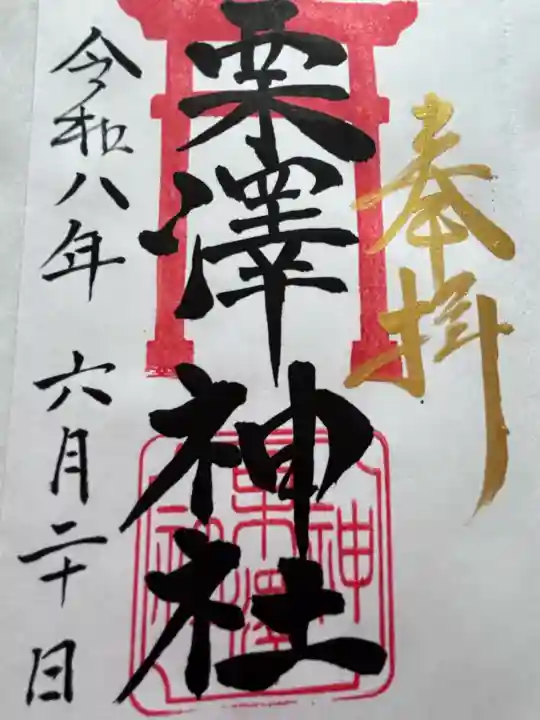 奉拝
栗澤神社
令和八年 六月二十日
栗澤神社